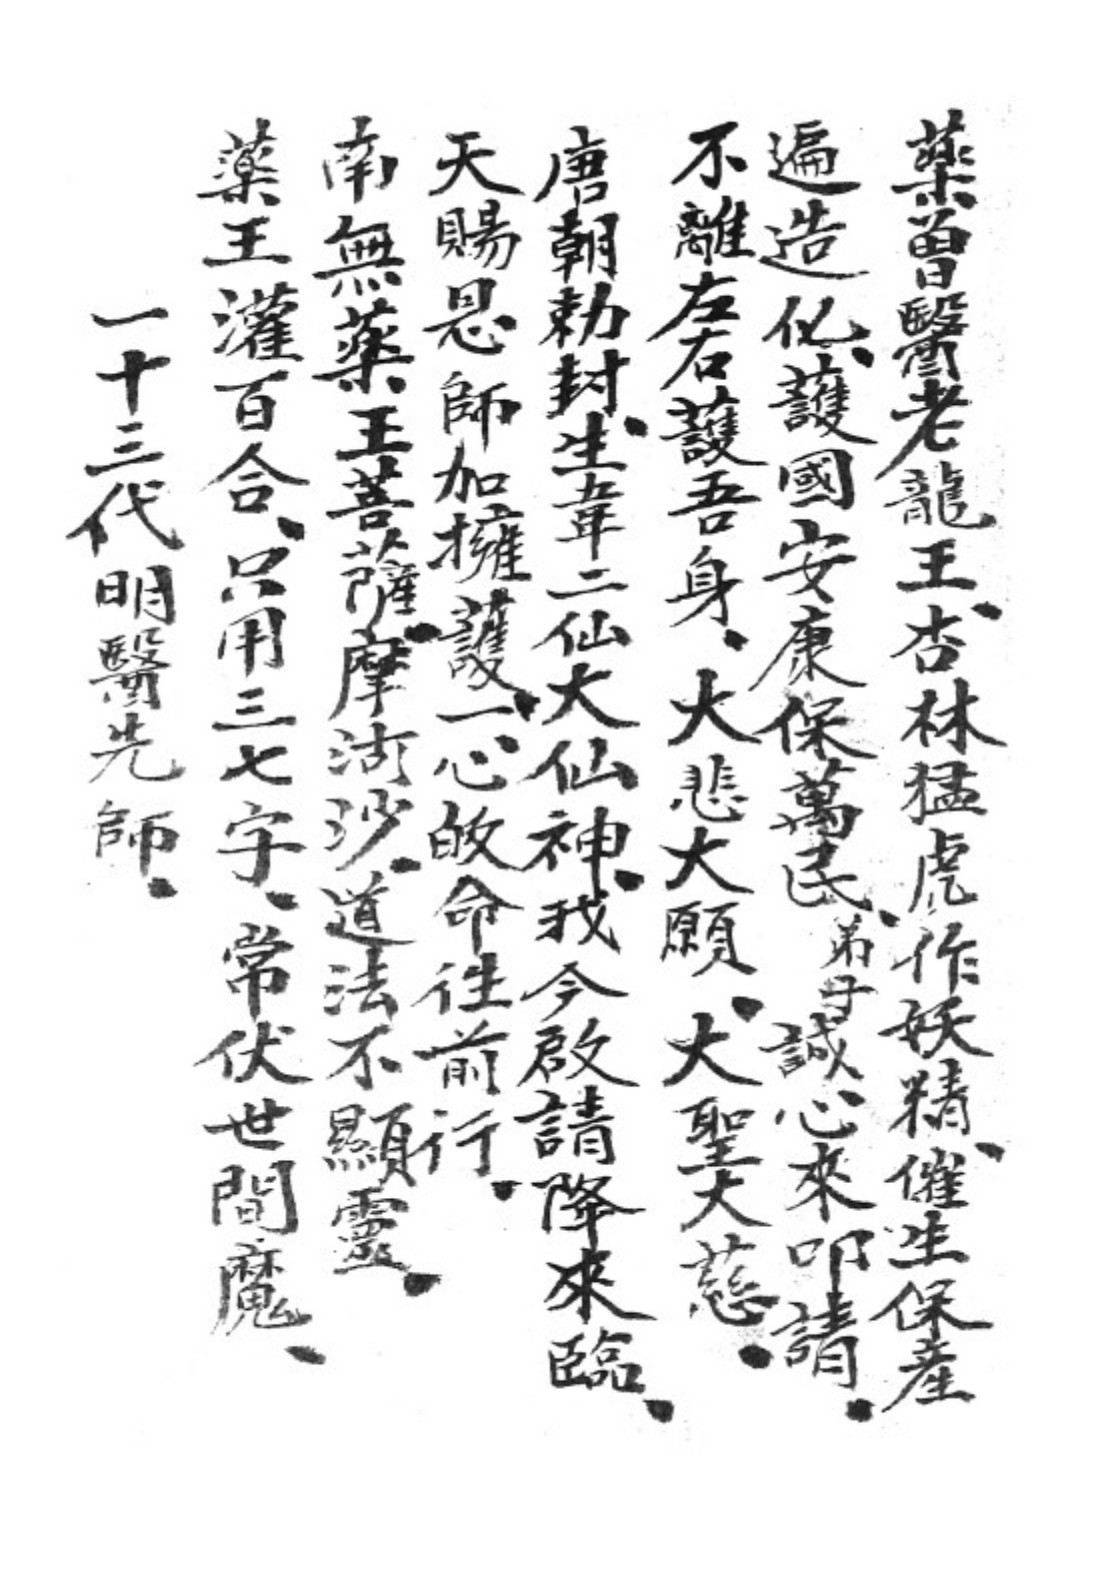 藥曾醫老龍王、杏林猛虎作妖精、催生保產
遍造化、護國安康保萬民、弟子誠心來叩請、
不離左右護吾身、大悲大願、大聖大慈、
唐朝勅封、生韋二仙大仙神、我今啟請降來臨、
天賜恩師加擁護、一心皈命往前行、
南無藥王菩薩、摩訶沙、道法不顯靈、
藥王灌百合、只用三七字、常伏世間魔、
一十三代明醫先師、